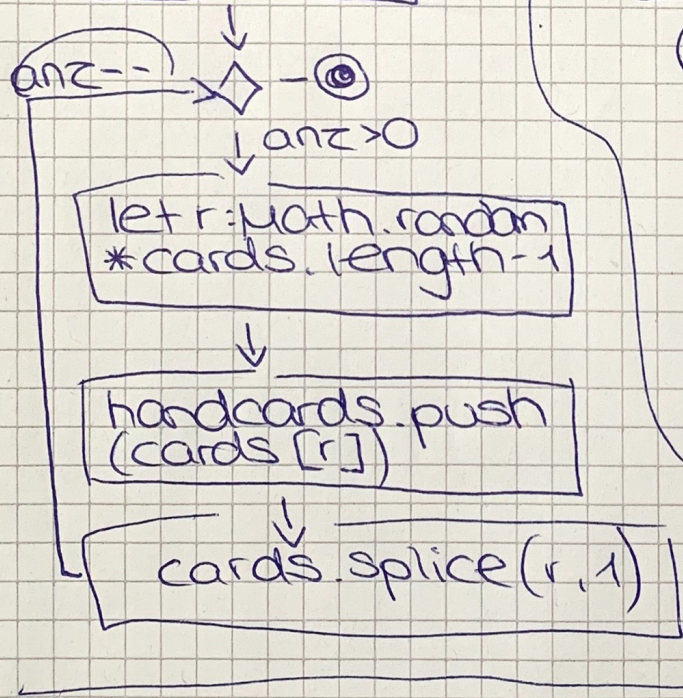 anz--
anz>0
let r=Math.random
*cards.length-1
handcards.push
(cards[r])
cards.splice(r,1)